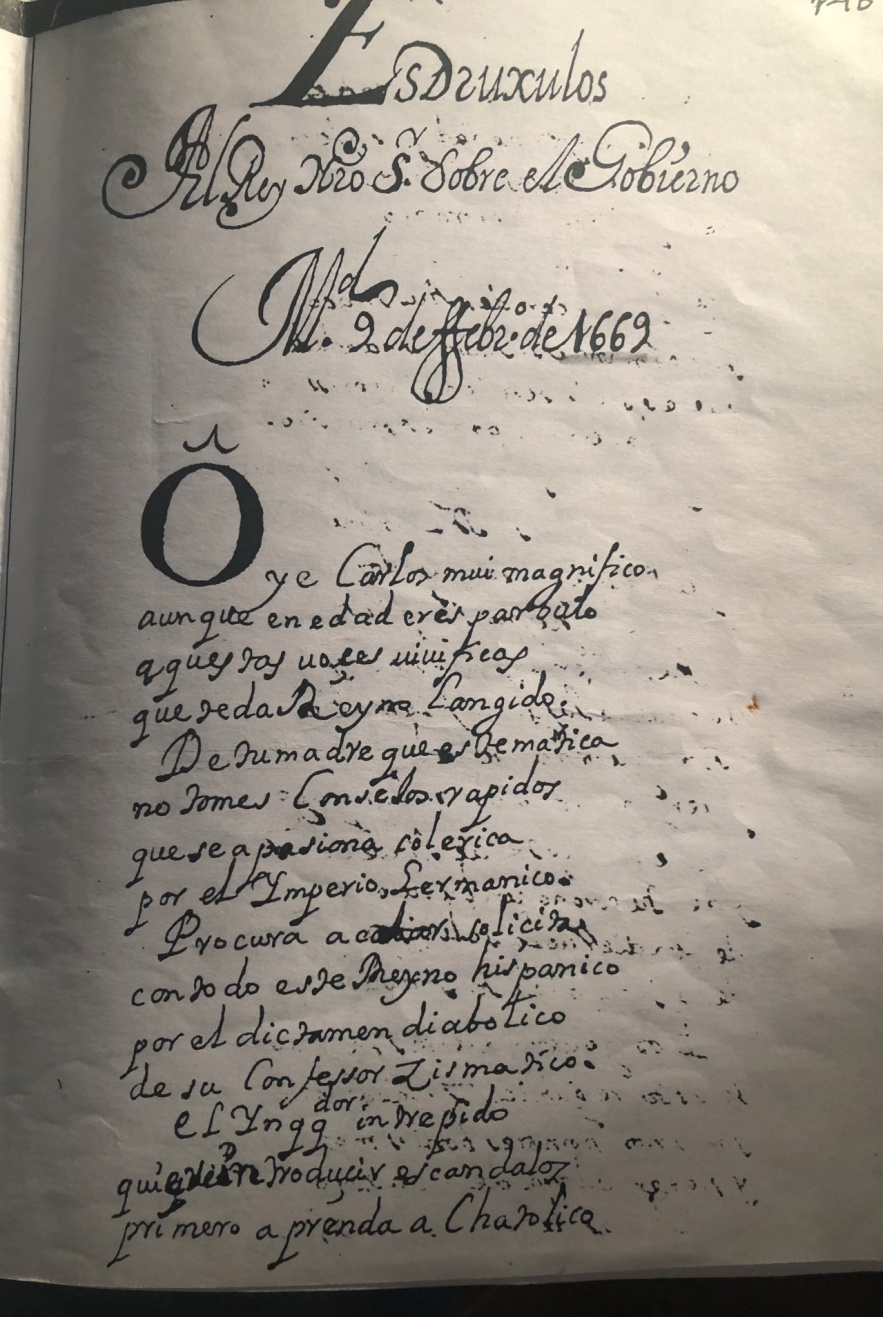 EsDruxulos
Al Rey Nr̃o S.r Sobre el Gobierno
M.d 9 de ffebr.o de 1669
Oye Carlos mui magnifico
aunque en edad eres parbulo
aquestas uoces uiuificas
que te da Reyno Langido.
De tu madre que es tematica
no tomes Conselos rapidos
que se apasiona colerica
por el Ymperio Germanico.
Procura acabar solicita
con todo este Reyno hispanico
por el dictamen diabolico
de su Confessor Zismatico.
el Ynqqdor intrepido
quiere introducir escandaloz
primero aprenda a Chatolica